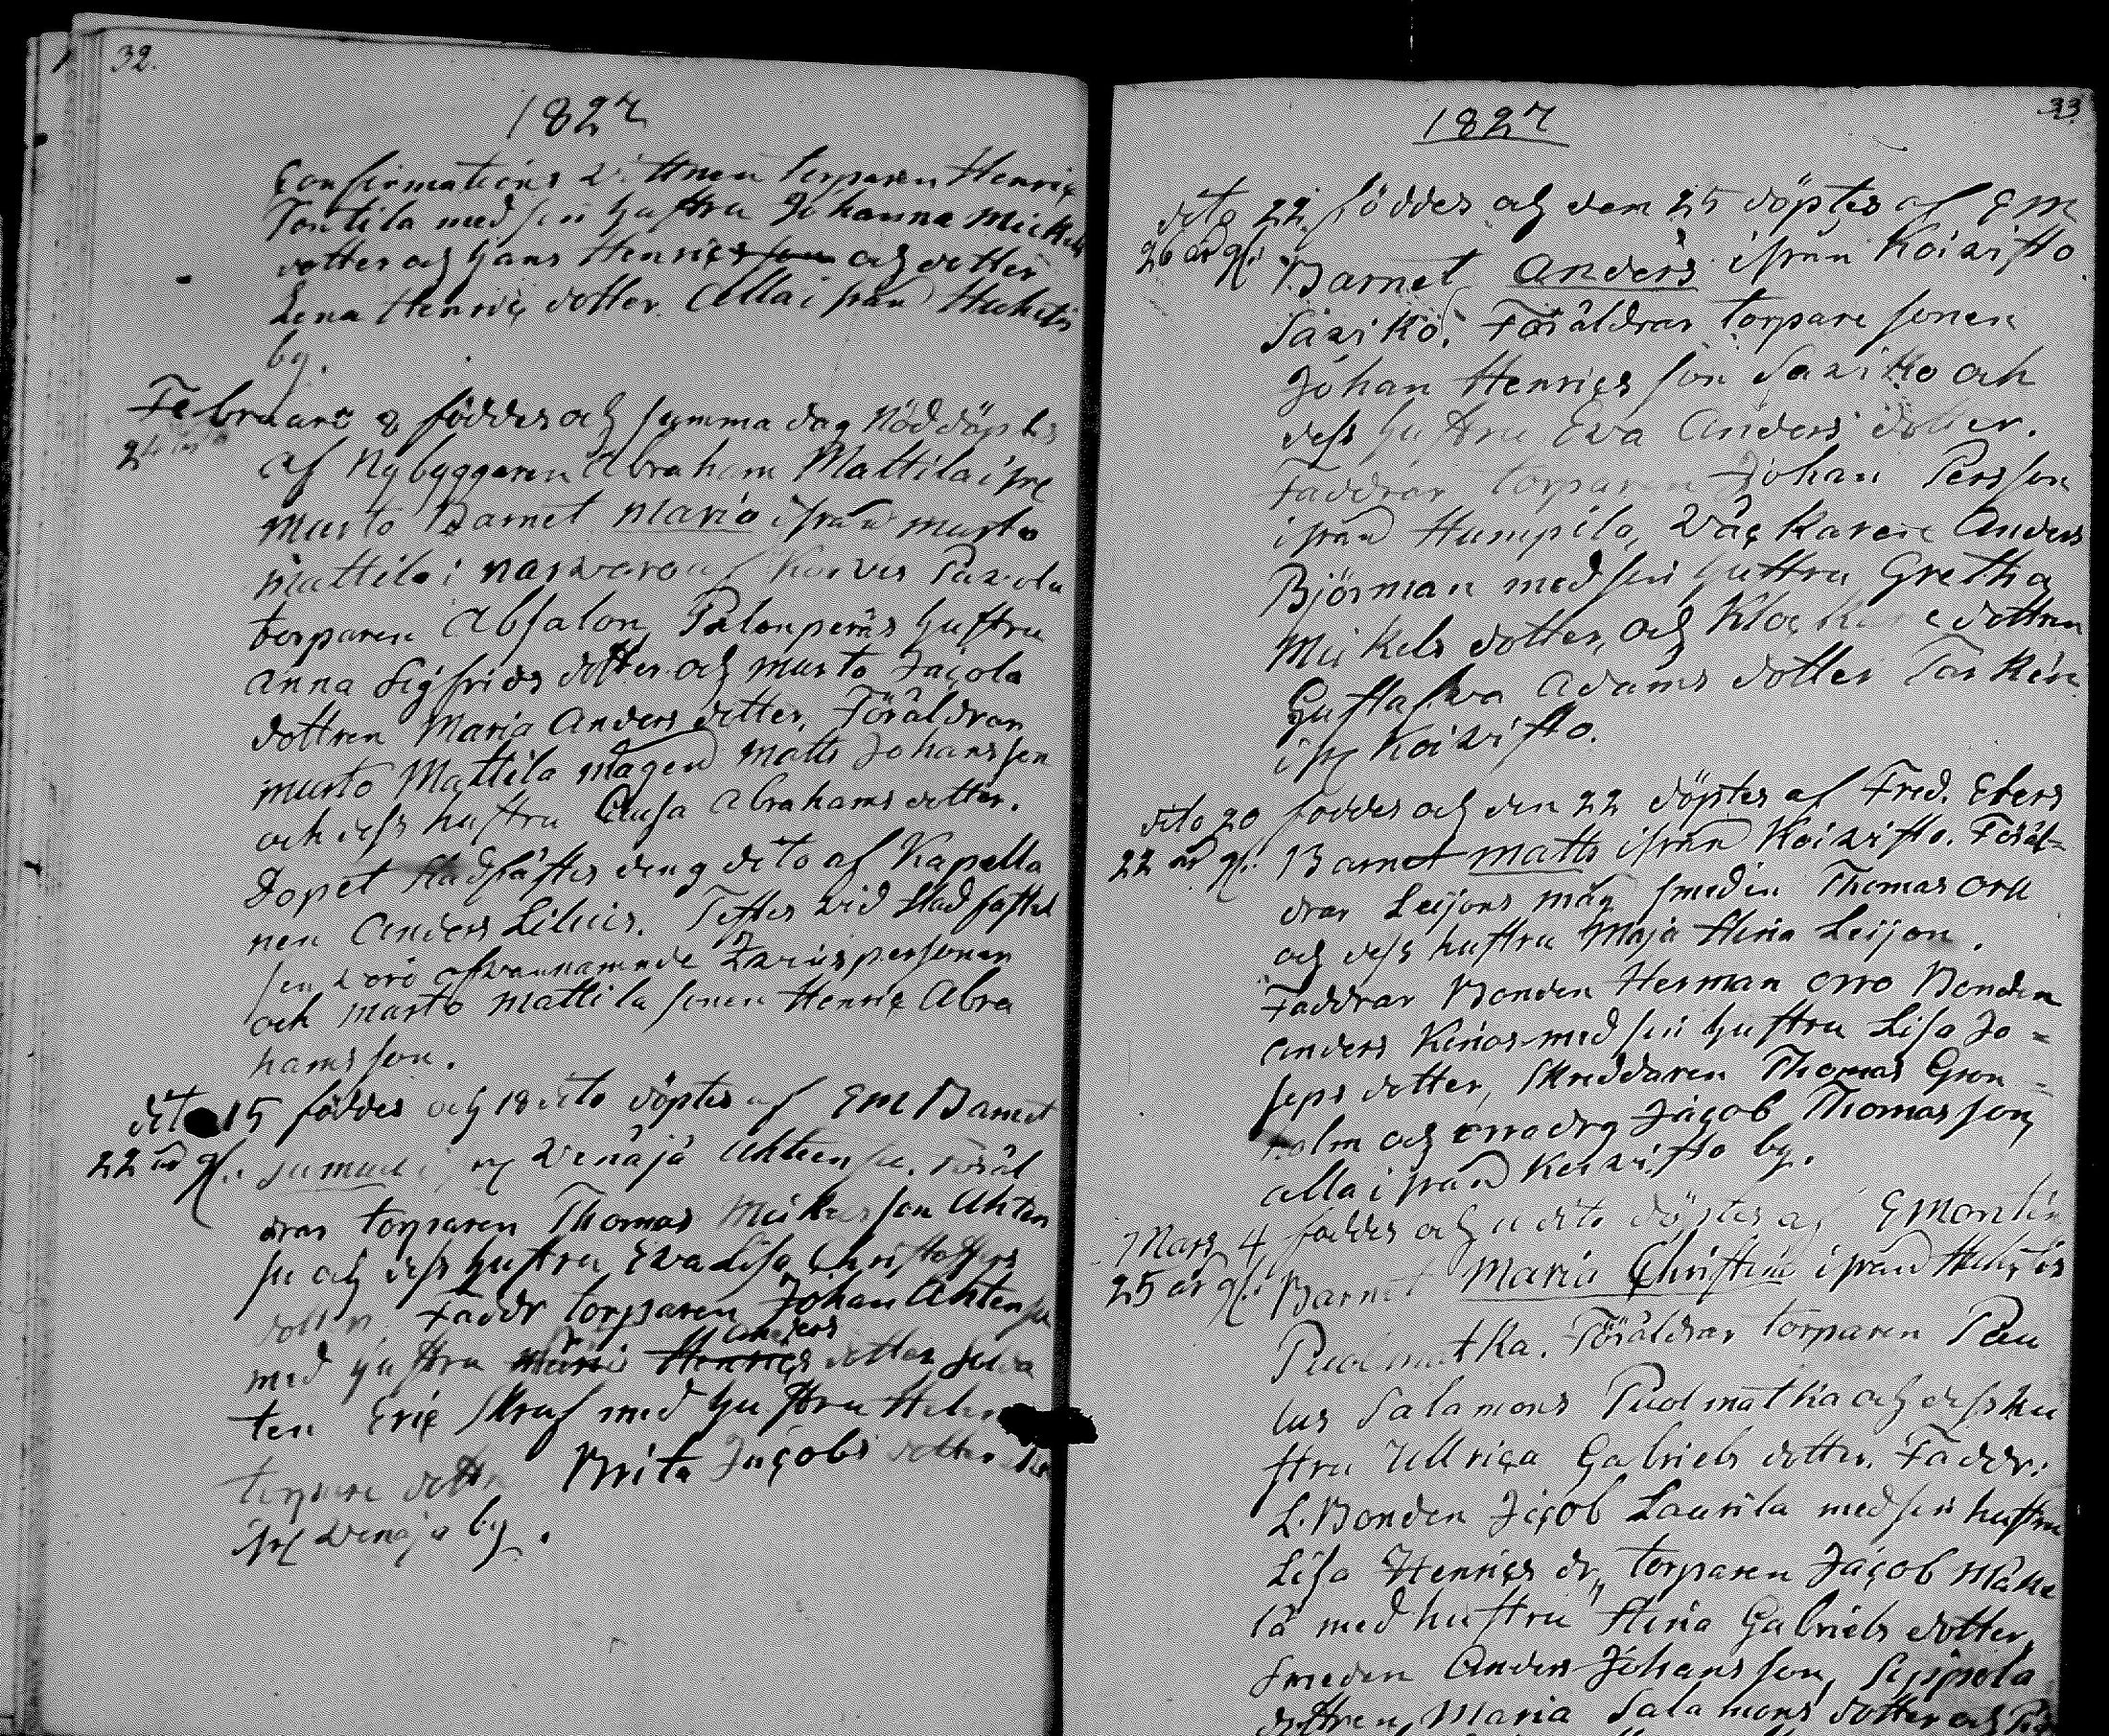 32.
1827
Confirmations Vittnen torparen Henric
Tontila med sin hustru Johanna Mickels
dotter och Hans Henrics son och dotter
Lena Henrics dotter. Alla ifrån
by.
Februari 8 föddes och samma dag Nöddöptes
af Nybyggaren Abraham Mattila ifr
Murto Barnet Maria ifrån Murto
Mattila; närvaro af
torparen Absalon Palonperäs hustru
Anna Sigfrids dotter och Murto Jacola
dottren Maria Anders dotter, Föräldrar
Murto Mattila mågen Matts Johansson
och dess hustru Caisa Abrahams dotter.
Dopet stadfästes den 9 dito af Kapella
nen Anders Lilius. Testes vid stadfästel
sen voro ofvannämnde Tvenne personer
och Murto Mattila sonen Henric Abra
hamsson.
dito 15 föddes och 18 dito döptes af EM Barnet
22 år gl. ifr Venäjä Ahtensu. Föräl
drar torparen Thomas Mickelsson Ahten
su och dess hustru Eva Lisa Christoffers
dotter. Faddr torparen Johan Ahtensu
med hustru Maria Henrics Anders dotter, Solda
ten Eric Skruf med hustru
torpare dottren Brita Jacobs dotter
ifr Venäjä by.
33.
1827
dito 22 föddes och den 25 döptes af EM
26 år gl. Barnet Anders ifrån Koivisto
Saviko. Föräldrar torpare sonen
Johan Henrics son Saviko och
dess hustru Eva Anders dotter.
Faddrar torparen Johan Persson
ifrån Humpila, Väckaren Anders
Björman med sin hustru Gretha
Mickels dotter, och Klockare dottren
Gustafva Adams dotter
ifr Koivisto.
dito 20 föddes och den 22 döptes af Fred. Ebers
22 år gl. Barnet Matts ifrån Koivisto. Föräl=
drar Leijons måg smeden Thomas Orn
och dess hustru Maja Stina Leijon.
Faddrar Bonden Herman Orro Bonden
Anders Kinos med sin hustru Lisa Jo=
seps dotter, Skreddaren Thomas Gron=
holm och Orro drg Jacob Thomasson,
alla ifrån Koivisto by.
Mars 4 föddes och 11 dito döptes af EMontin
25 år gl. Barnet Maria Christina ifrån
Puolmatka. Föräldrar torparen Pau
lus Salamons Puolmatka och dess hu
stru Ullrica Gabriels dotter. Faddr:
L. Bonden Jacob Laurila med sin hustru
Lisa Henrics dr, torparen Jacob Mäke
lä med hustru Stina Gabriels dotter,
Smeden Anders Johansson, Seppola
dottren, Maria Salamons dotter och